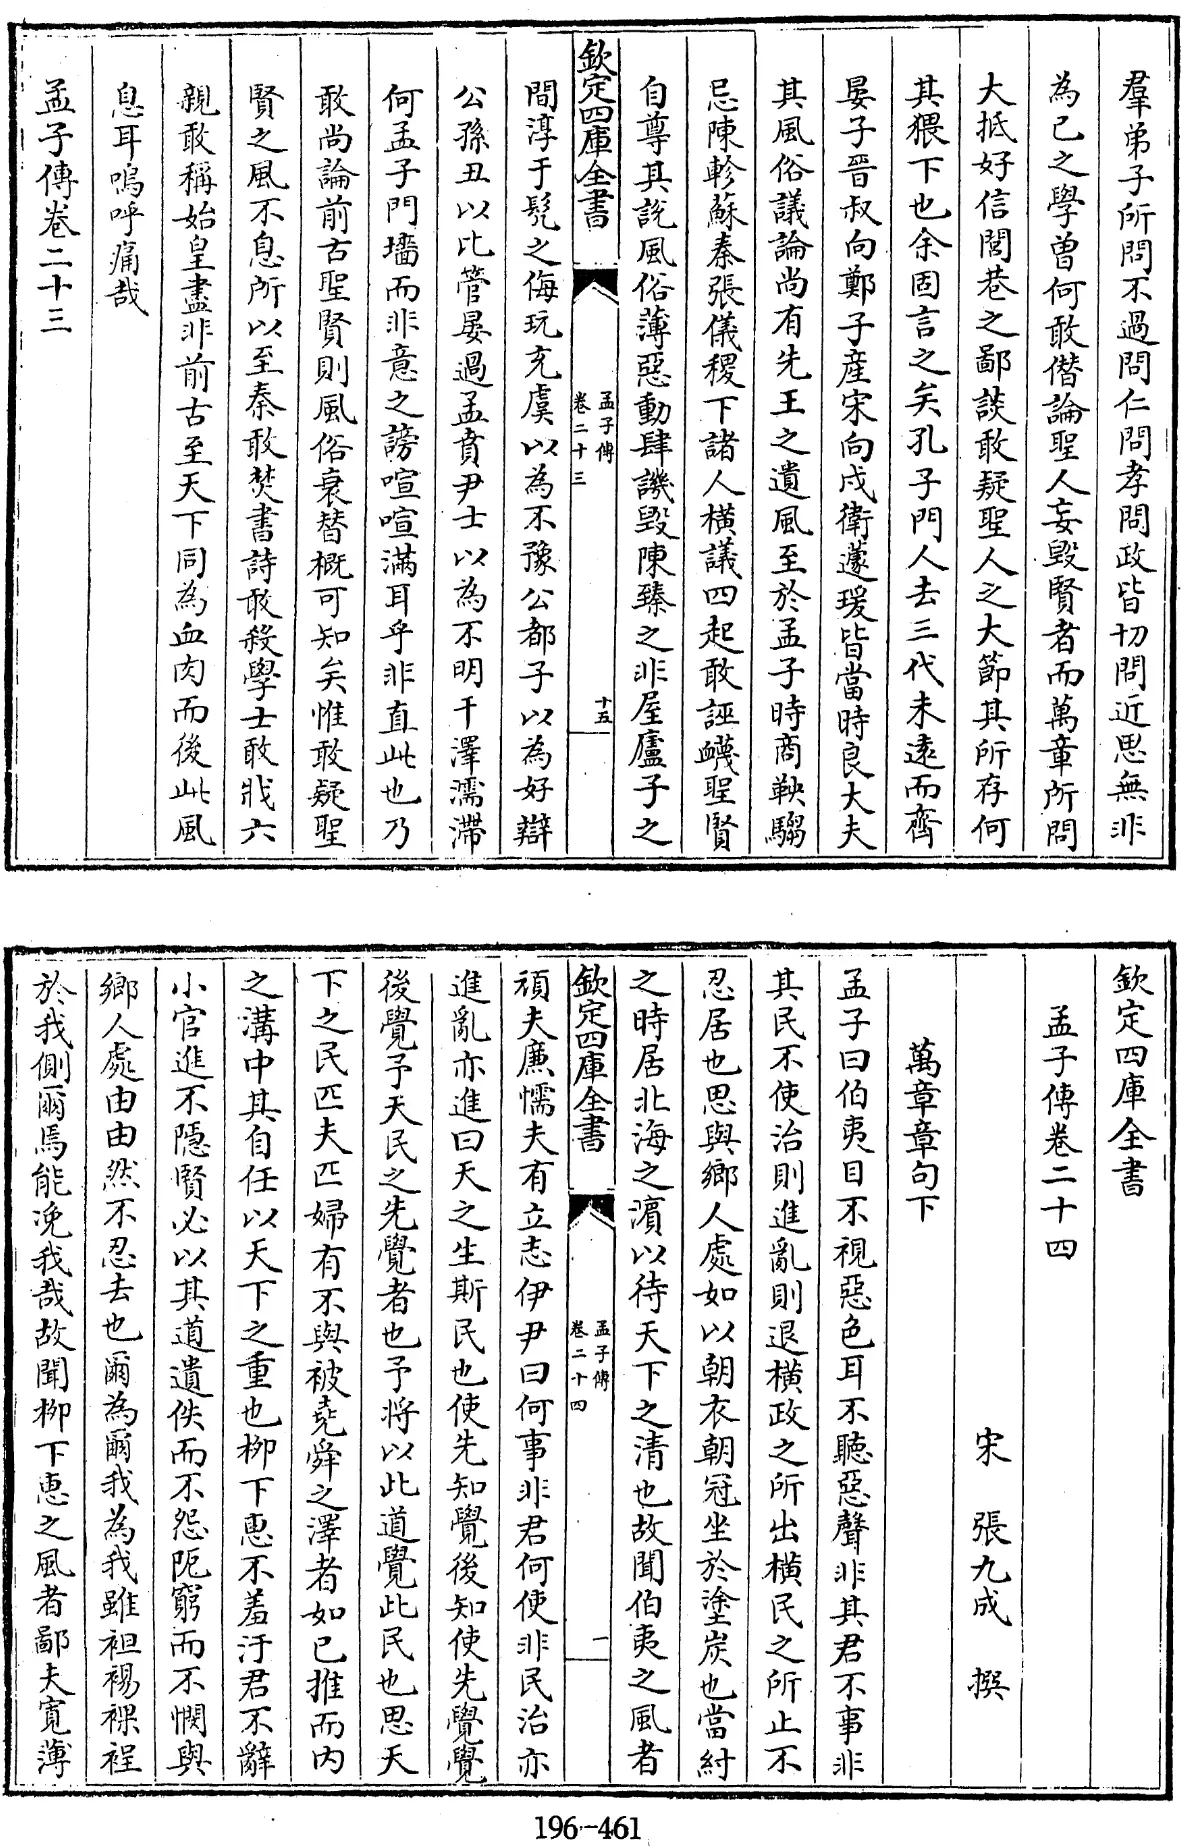 羣弟子所問不過問仁問孝問政皆切問近思無非
為已之學曽何敢僭論聖人妄毀賢者而萬章所問
大抵好信閭巷之鄙談敢疑聖人之大節其所存何
其猥下也余固言之矣孔子門人去三代未遠而齊
晏子晉叔向鄭子產宋向戌衛蘧瑗皆當時良大夫
其風俗議論尚有先王之遺風至於孟子時商鞅騶
忌陳軫蘇秦張儀稷下諸人橫議四起敢誣衊聖賢
自尊其說風俗薄惡動肆譏毀陳臻之非屋廬子之
欽定四庫全書
孟子傳
卷二十三
十五
間淳于髡之侮玩充虞以為不豫公都子以為好辯
公孫丑以比管晏過孟賁尹士以為不明干澤濡滯
何孟子門墻而非意之謗喧喧滿耳乎非直此也乃
敢尚論前古聖賢則風俗衰替概可知矣惟敢疑聖
賢之風不息所以至秦敢焚書詩敢殺學士敢戕六
親敢稱始皇盡非前古至天下同為血肉而後此風
息耳嗚呼痛哉
孟子傳卷二十三
欽定四庫全書
孟子傳卷二十四
宋 張九成 撰
萬章章句下
孟子曰伯夷目不視惡色耳不聽惡聲非其君不事非
其民不使治則進亂則退橫政之所出橫民之所止不
忍居也思與鄉人處如以朝衣朝冠坐於塗炭也當紂
之時居北海之濱以待天下之清也故聞伯夷之風者
欽定四庫全書
孟子傳
卷二十四
一
頑夫廉懦夫有立志伊尹曰何事非君何使非民治亦
進亂亦進曰天之生斯民也使先知覺後知使先覺覺
後覺予天民之先覺者也予將以此道覺此民也思天
下之民匹夫匹婦有不與被堯舜之澤者如已推而内
之溝中其自任以天下之重也栁下恵不羞汙君不辭
小官進不隱賢必以其道遺佚而不怨阨窮而不憫與
鄉人處由由然不忍去也爾為爾我為我雖袒裼裸裎
於我側爾焉能浼我哉故聞栁下恵之風者鄙夫寛薄
196-461